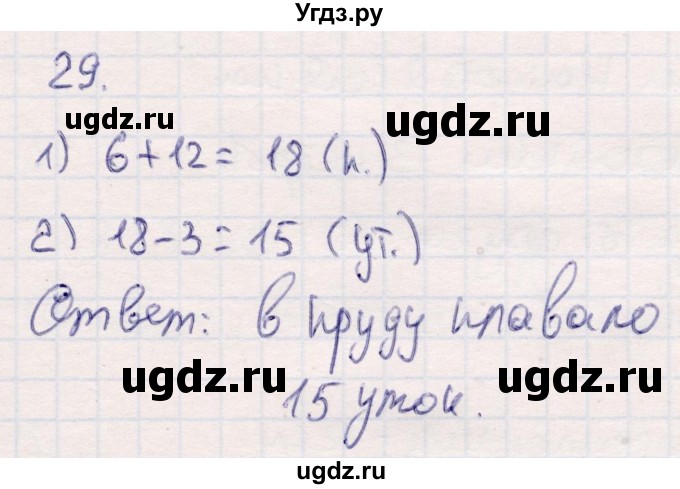 Угдз.ру
29.
ugdz.ru
ugdz.ru
1) 6+12= 18 (п.)
2) 18-3=15 (ут.)
Ответ: в пруду плавало
ugdz.ru
ugdz.ru
15 уток.
ugdz.ru